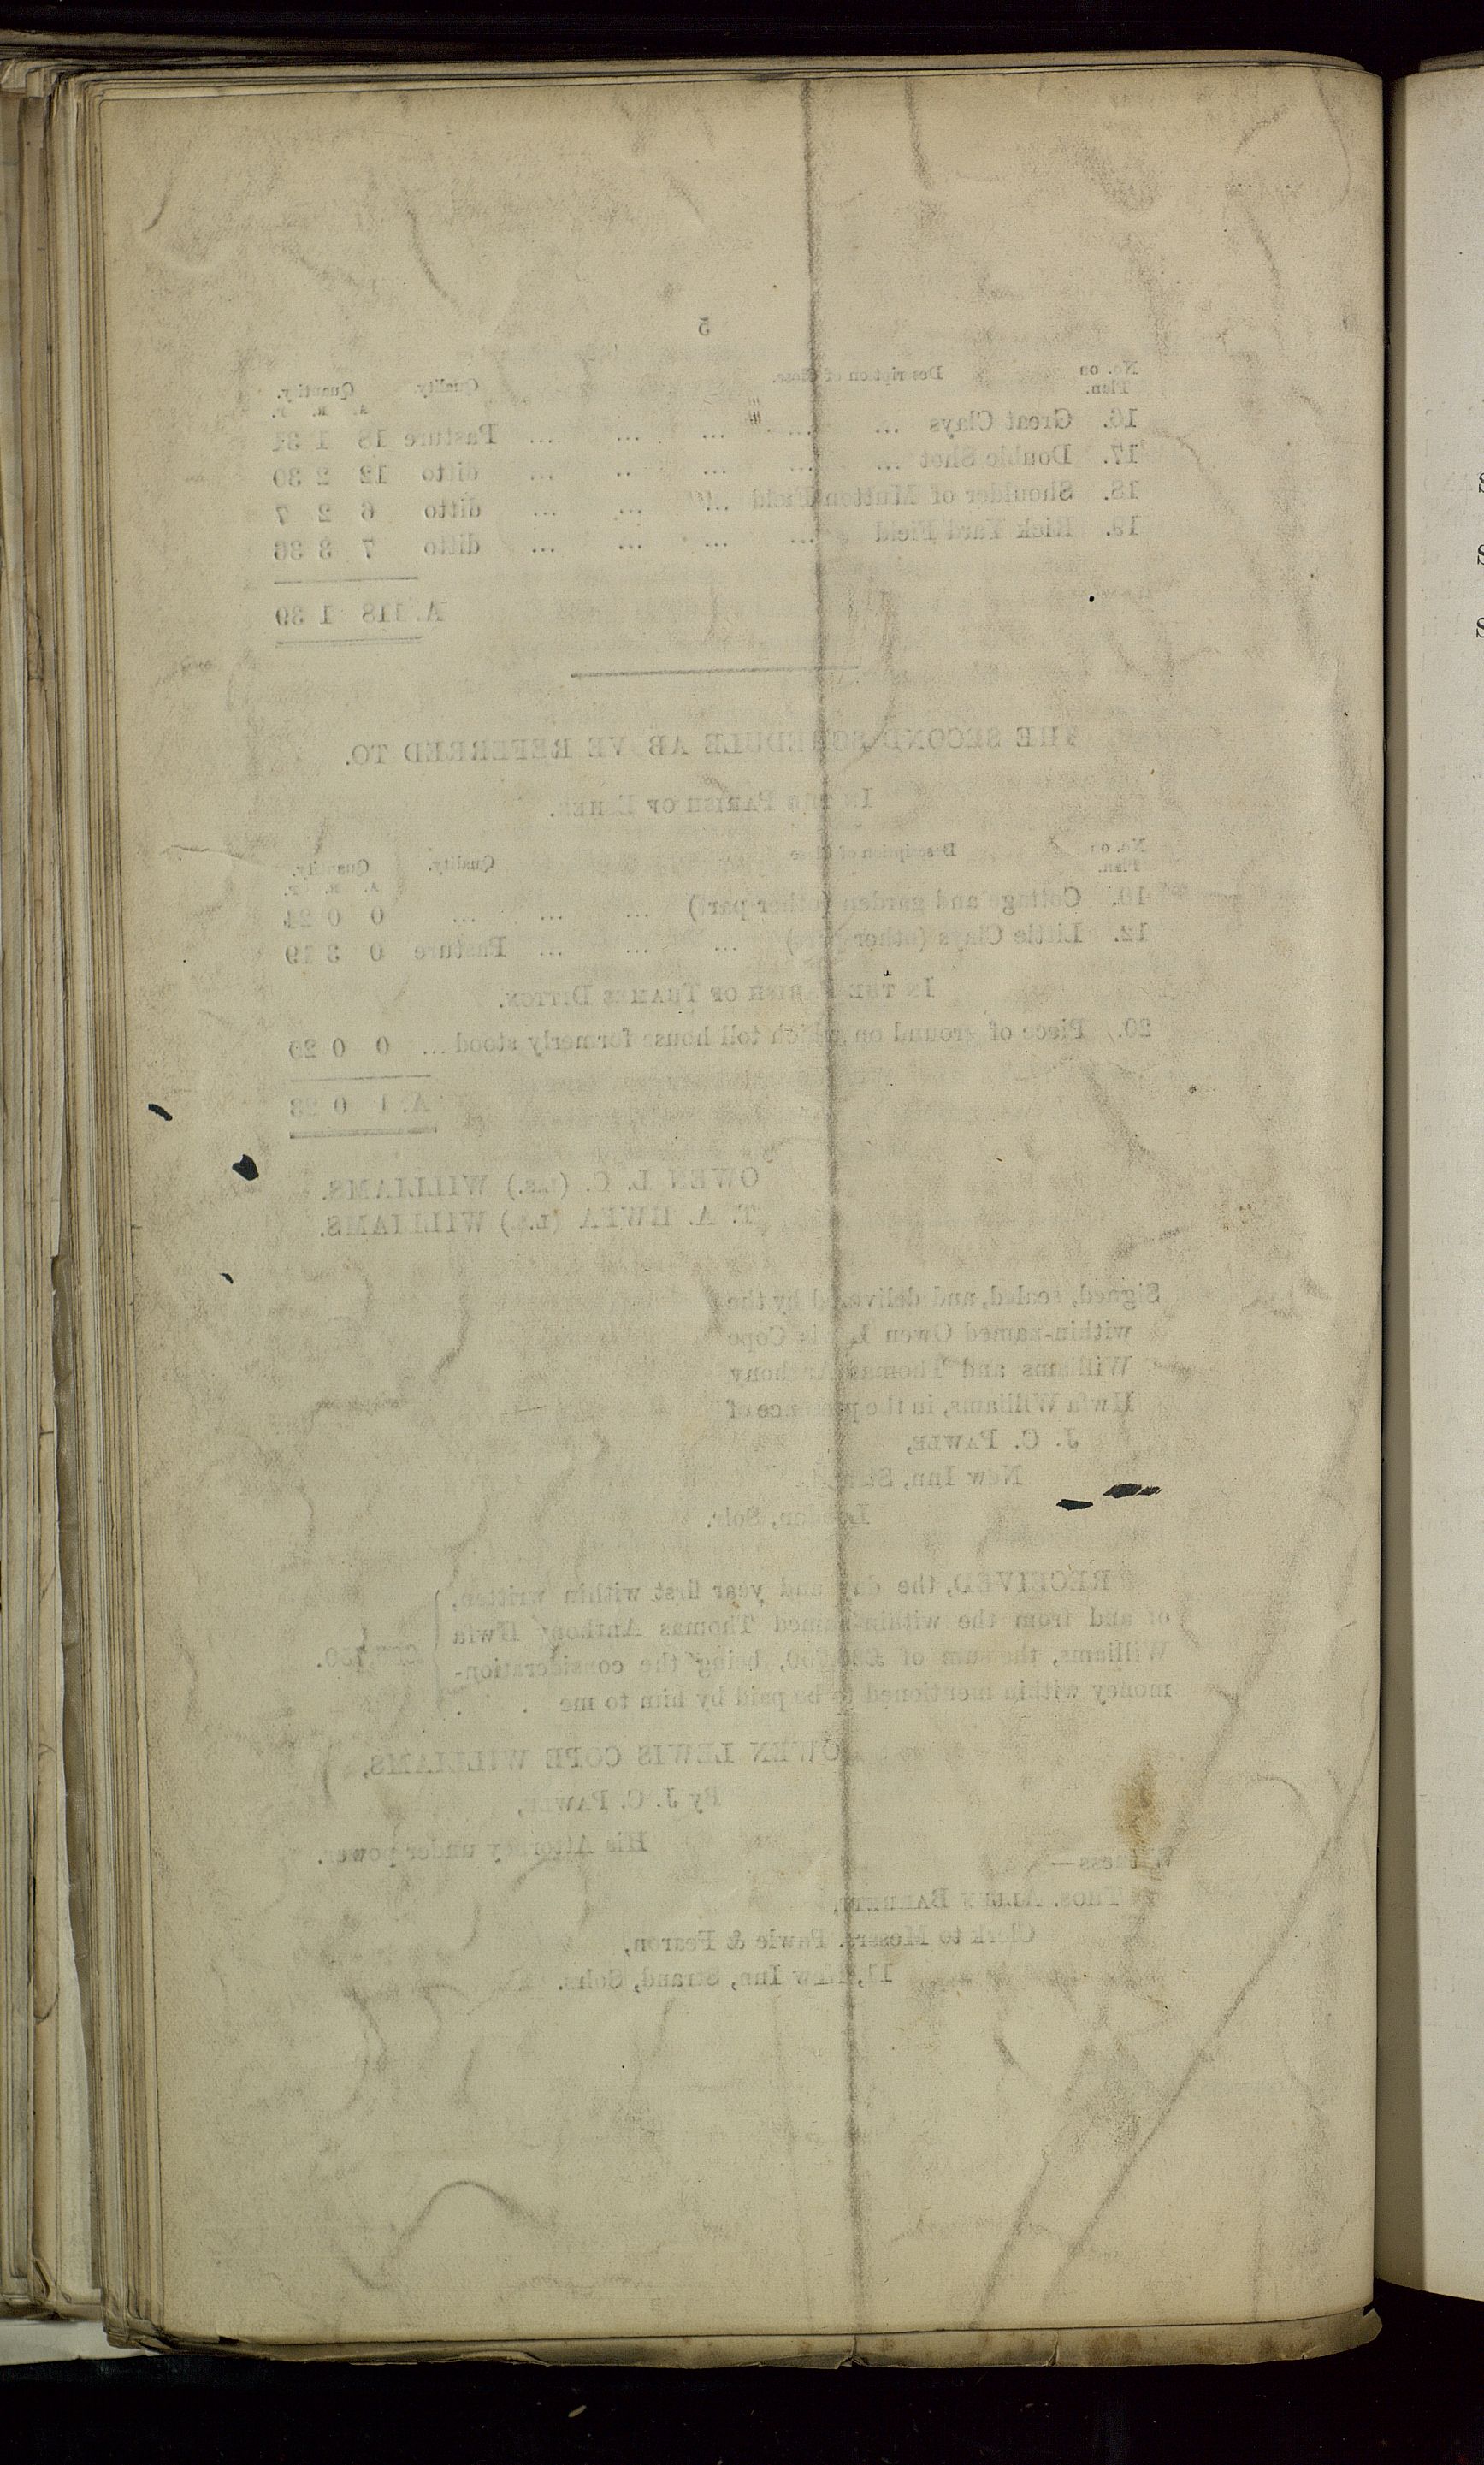 5
No. on Plan. Description of Close. Quality. Quantity.
A. R. P.
16. Great Clays ... ... ... ... ... Pasture 18 1 34
17. Double Shot ... ... ... ... ... ditto 12 2 30
18. Shoulder of Mutton Field ... ... ... ditto 6 2 7
19. Rick Yard Field ... ... ... ... ditto 7 3 36
A. 118 1 39
THE SECOND SCHEDULE ABOVE REFERRED TO.
IN THE PARISH OF ESHER.
No. on Plan. Description of Close Quality. Quantity.
A. R. P.
10. Cottage and garden (other part) ... ... ... 0 0 24
12. Little Clays (other part) ... ... ... Pasture 0 3 19
IN THE PARISH OF THAMES DITTON.
20. Piece of ground on which toll house formerly stood ... 0 0 20
A. 1 0 23
OWEN L. C. (L.S.) WILLIAMS.
T. A. HWFA (L.S.) WILLIAMS.
Signed, sealed, and delivered by the
within-named Owen Lewis Cope
Williams and Thomas Anthony
Hwfa Williams, in the presence of
J. C. PAWLE,
New Inn, Strand,
London, Solr.
RECEIVED, the day and year first within written,
of and from the within-named Thomas Anthony Hwfa
Williams, the sum of being the consideration-
money within mentioned to be paid by him to me . .
OWEN LEWIS COPE WILLIAMS,
By J. C. PAWLE,
His Attorney under power.
Witness—
THOS. ALLEN
Clerk to Messrs. Pawle & Fearon,
11, New Inn, Strand, Solrs.